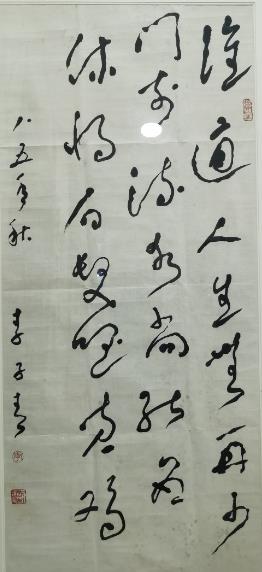 谁道人生无再少
门前流水尚能西
休将白发唱黄鸡
八五年秋 李子青